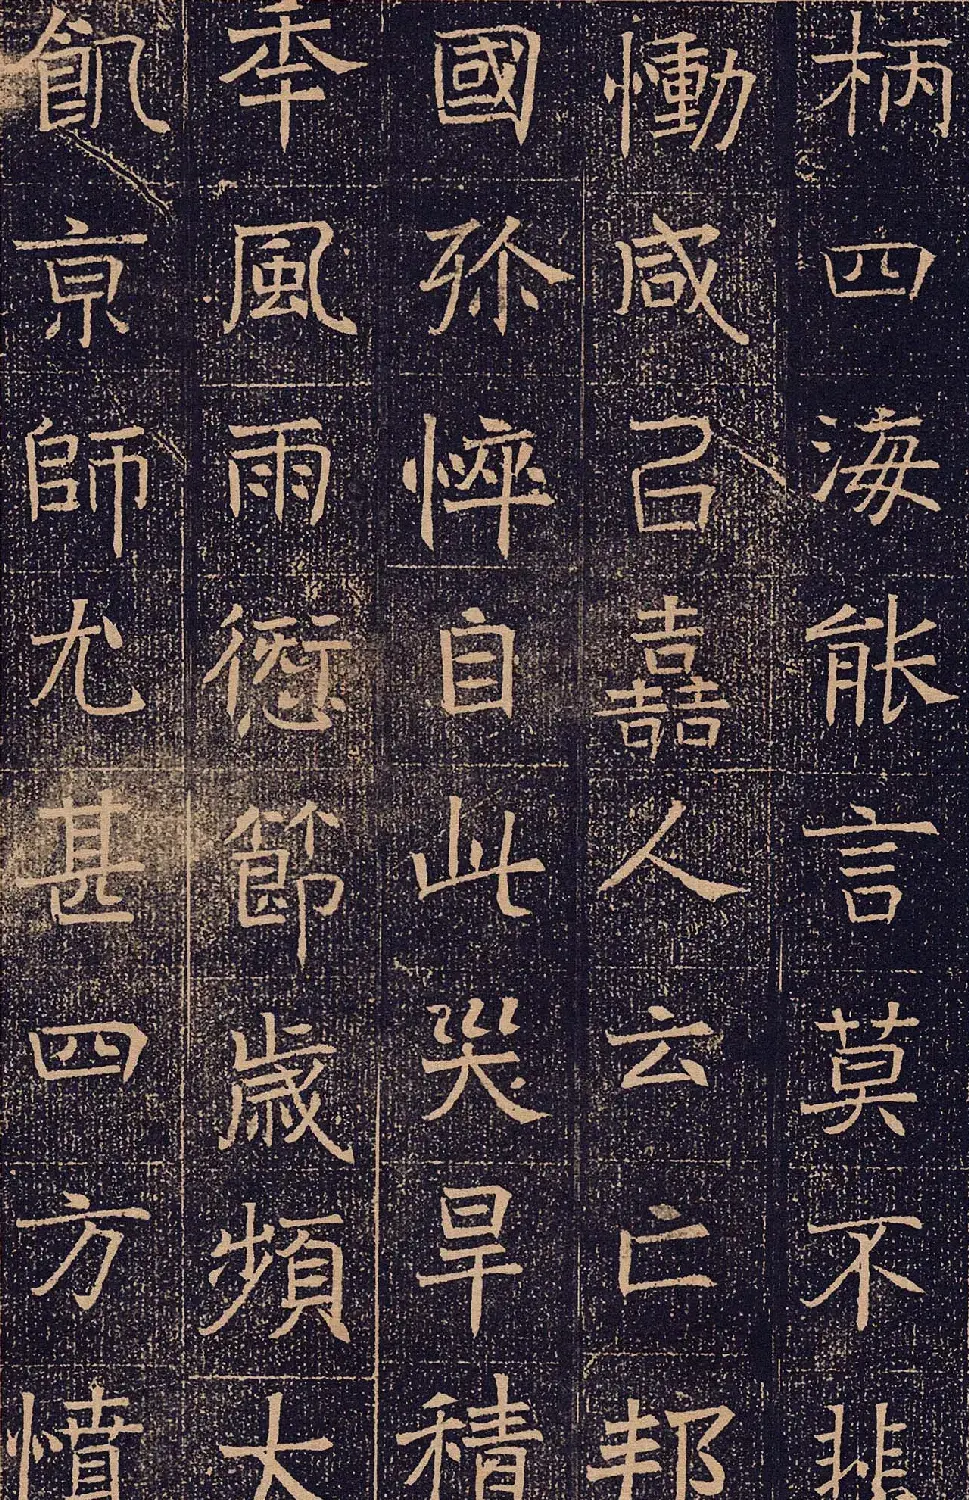 柄四海能言莫不悲
慟咸㠯嚞人云亡邦
國殄悴自此災旱積
秊風雨愆節歲頻大
飢亰師尤甚四方憤